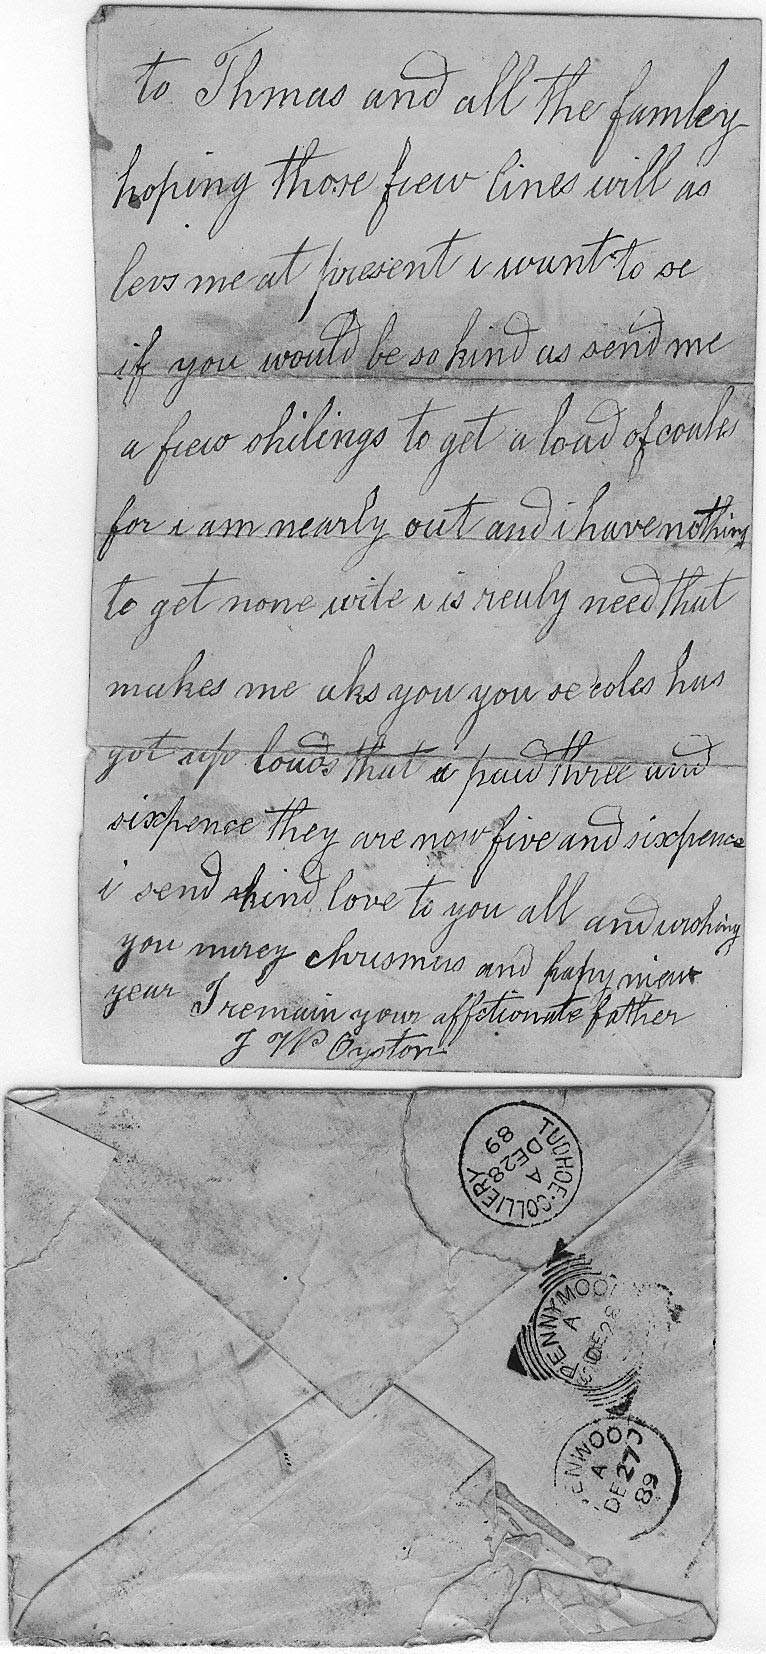 to Thmas and all the famley
hoping those fiew lines will as
levs me at present i want to se
if you would be so kind as send me
a fiew shilings to get a load of coales
for i am nearly out and i have nothing
to get none wite i is realy need that
makes me aks you you se coles has
got up loads that i paid three and
sixpence they are now five and sixpence
i send kind love to you all and wishing
you mirey chrismus and hapy niew
year I remain your affctionate father
J W Oyston
TUDHOE·COLLIERY
A
DE 28
89
PENNYMOO
A
DE 28
ENWOO
A
DE 27
89